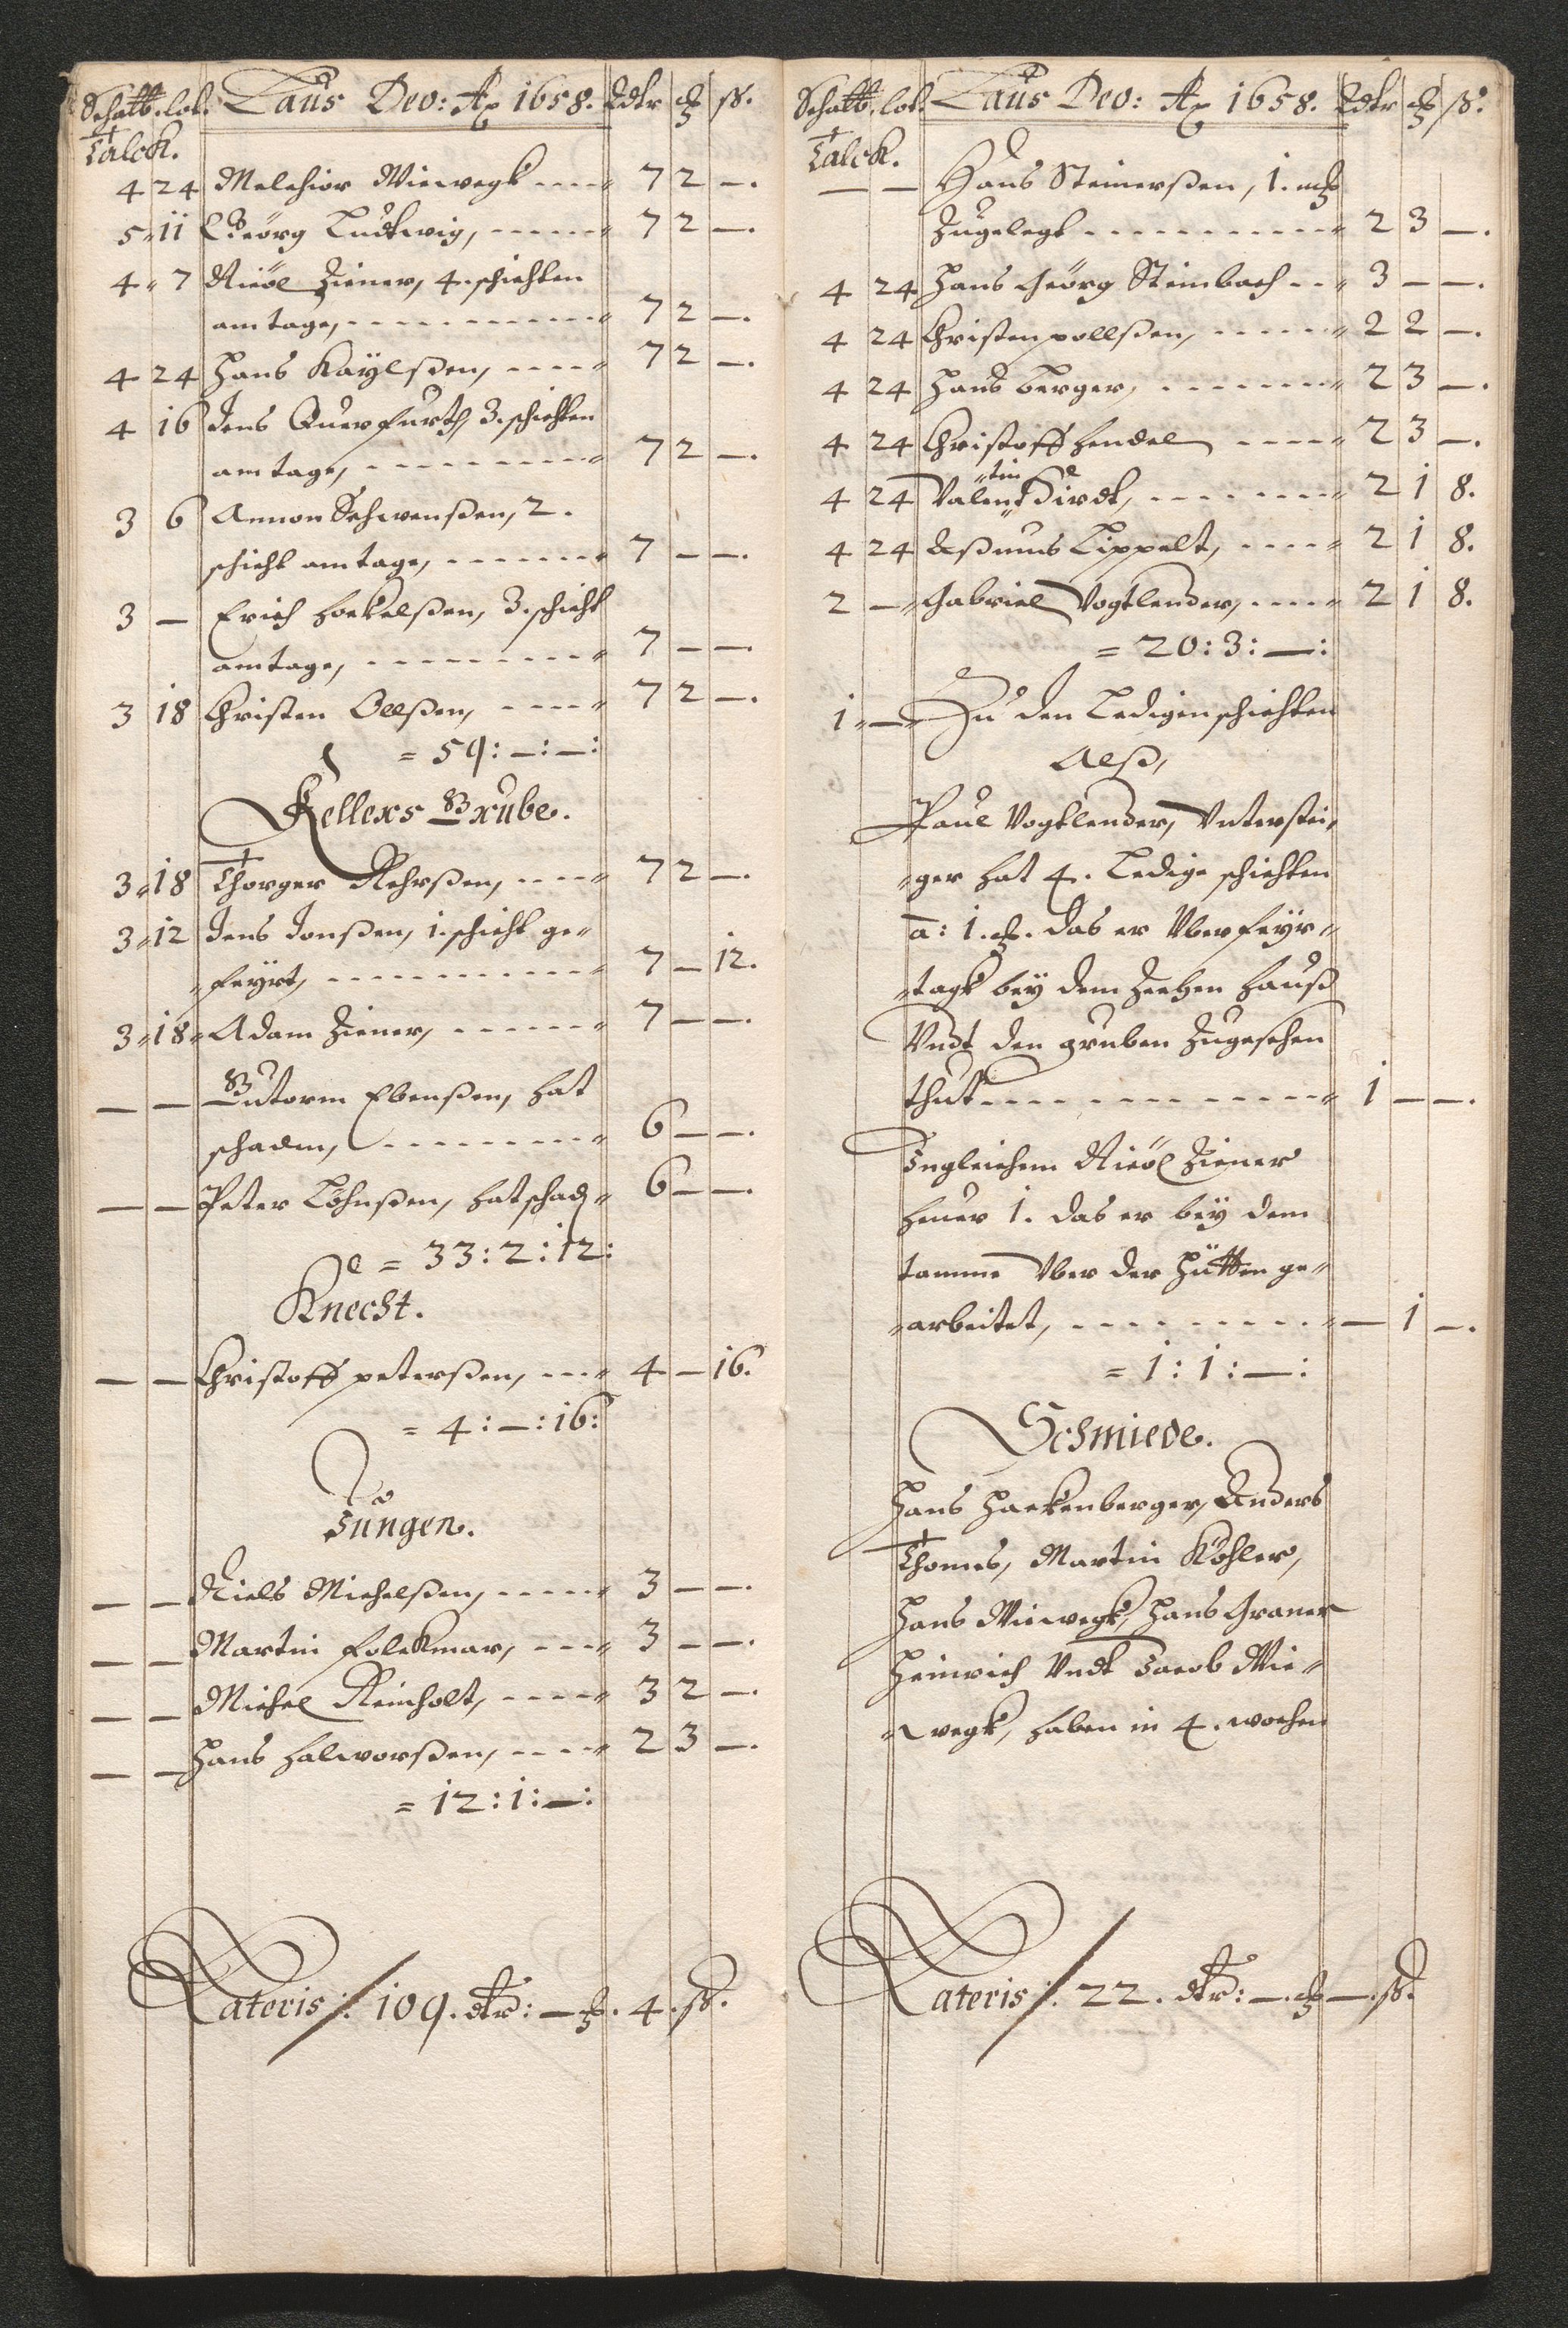 Schatt. lot. Laus Deo: Aō 1658. Rdtr ort ß.
Talck.
4 24 Melchior Viewegk ---- 7 2 —.
5 11 Geörg Ludtwig, ----- 7 2 —.
4 7 Nicol Ziener, 4. schichten
am tage, ---------- 7 2 —.
4 24 Hans Kaÿlßen, ---- 7 2 —.
4 16 Jens Querfurth, 3. schichten
am tage, --------- 7 2 —.
3 6 Amon Schwenßen, 2.
schicht am tage, ------- 7 — —.
3 — Erich Hokelßen, 3. schicht
am tage, --------- 7 — —.
3 18 Christen Oelßen, ---- 7 2 —.
= 59: —: —:
Kellers Grube.
3 18 Thorger Rohrßen, ---- 7 2 —.
3 12 Jens Jonßen, 1. schicht ge-
feyrt, ---------- 7 — 12.
3 18 Adam Ziener, ------ 7 — —.
— — Gutorm Ebenßen, hat
schaden, -------- 6 — —.
— — Peter Löhnßen, hat schad 6 — —.
= 33: 2: 12:
Knecht.
— — Christoff peterßen, --- 4 — 16.
= 4: —: 16:
Jungen.
— — Niels Michelßen, ----- 3 — —.
— — Martin Folckmar, --- 3 — —.
— — Michel Reinholt, ---- 3 2 —.
— — Hans Halworßen, ---- 2 3 —.
= 12: 1: —:
Lateris :/: 109. dtr: — ort. 4. ß.
Schatt. lot. Laus Deo: Aō 1658. Rdtr ort ß.
Talck.
— — Hans Steinerßen, 1.
Zugelegt ---------- 2 3 —.
4 24 Hans Geörg Steinbach -- 3 — —.
4 24 Christen pollßen, ----- 2 2 —.
4 24 Hans berger, ------- 2 3 —.
4 24 Christoff hendel ---- 2 3 —.
4 24 Valentin Hirdt, ------ 2 1 8.
4 24 Aßmus Lippelt, ---- 2 1 8.
2 — Gabriel Vogtlender, ---- 2 1 8.
= 20: 3: —:
1 — Zu den Ledigen schichten
Alß,
Paul Vogtlender, Vnterstei-
ger hat 4. Ledige schichten
a: 1. ort. das er Vber feyr-
tagk bey dem Zechen hauß
Vndt den gruben Zugesehen
thut ------------- 1 — —.
Ingleichem Nicol Ziener
heuer 1. das er beÿ dem
tamme Vber der Hütten ge-
arbeitet, --------- — 1 —.
= 1: 1: —:
Schmiede.
Hans Hackenberger, Anders
Thomas, Martin Köhler,
Hans Viewegk, Hans Graner
Heinrich Vndt Jacob Vie-
wegk, haben in 4. wochen
Lateris :/: 22. dtr: — ort — ß.